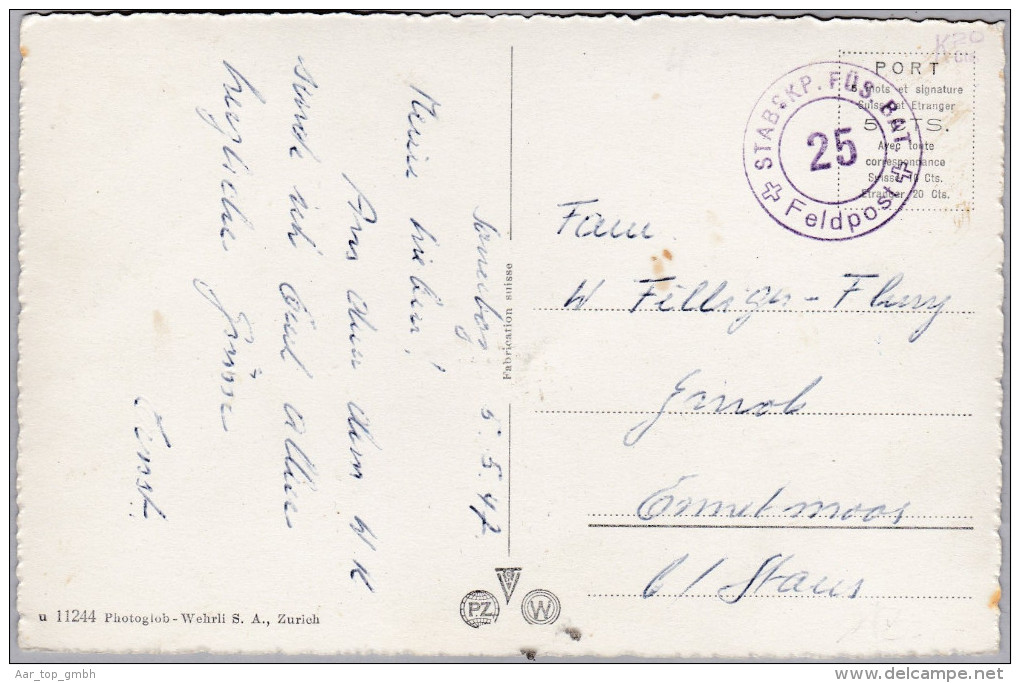 Sarnenberg 5.5.47.
Meine Lieben!
Aus dem W K
sende ich Euch allen
herzliche Grüsse
Ernst.
Fabrication suisse
u 11244 Photoglob-Wehrli S. A., Zurich
PZ
W
STABSKP. FÜS BAT
25
Feldpost
PORT
5 mots et signature
Suisse et Etranger
5 CTS.
Avec toute
correspondance
Suisse 10 Cts.
Etranger 20 Cts.
Fam.
W Filliger-Flury
Ennetmoos
b/ Stans
Aar_top_gmbh
www.delcampe.net